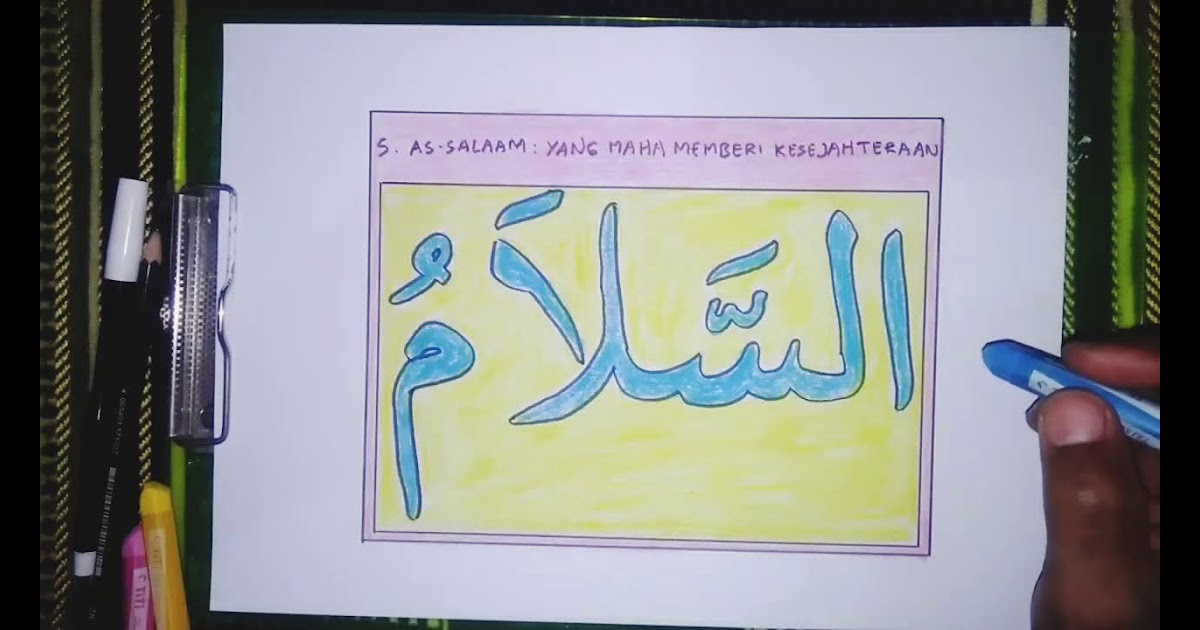 5. AS-SALAAM : YANG MAHA MEMBERI KESEJAHTERAAN
السَّلاَمُ
TITI